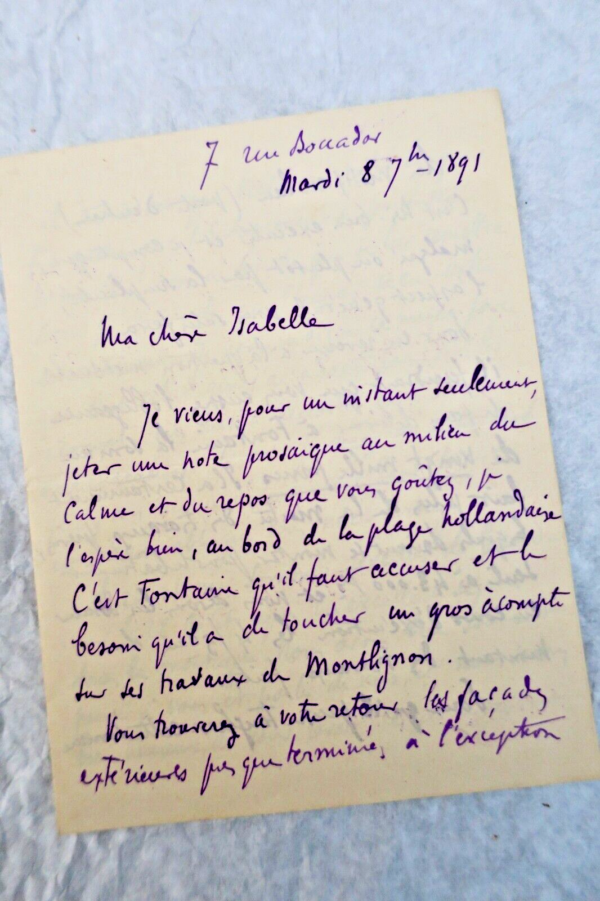 7 rue Boccador
Mardi 8 7bre 1891
Ma chère Isabelle
Je viens, pour un instant seulement,
jeter une note prosaique au milieu du
Calme et du repos que vous goûtez, je
l'espère bien, au bord de la plage hollandaise
C'est Fontaine qu'il faut accuser et le
besoin qu'il a de toucher un gros àcompte
sur ses travaux de Montlignon.
Vous trouverez à votre retour les façades
extérieures presque terminées à l'exception